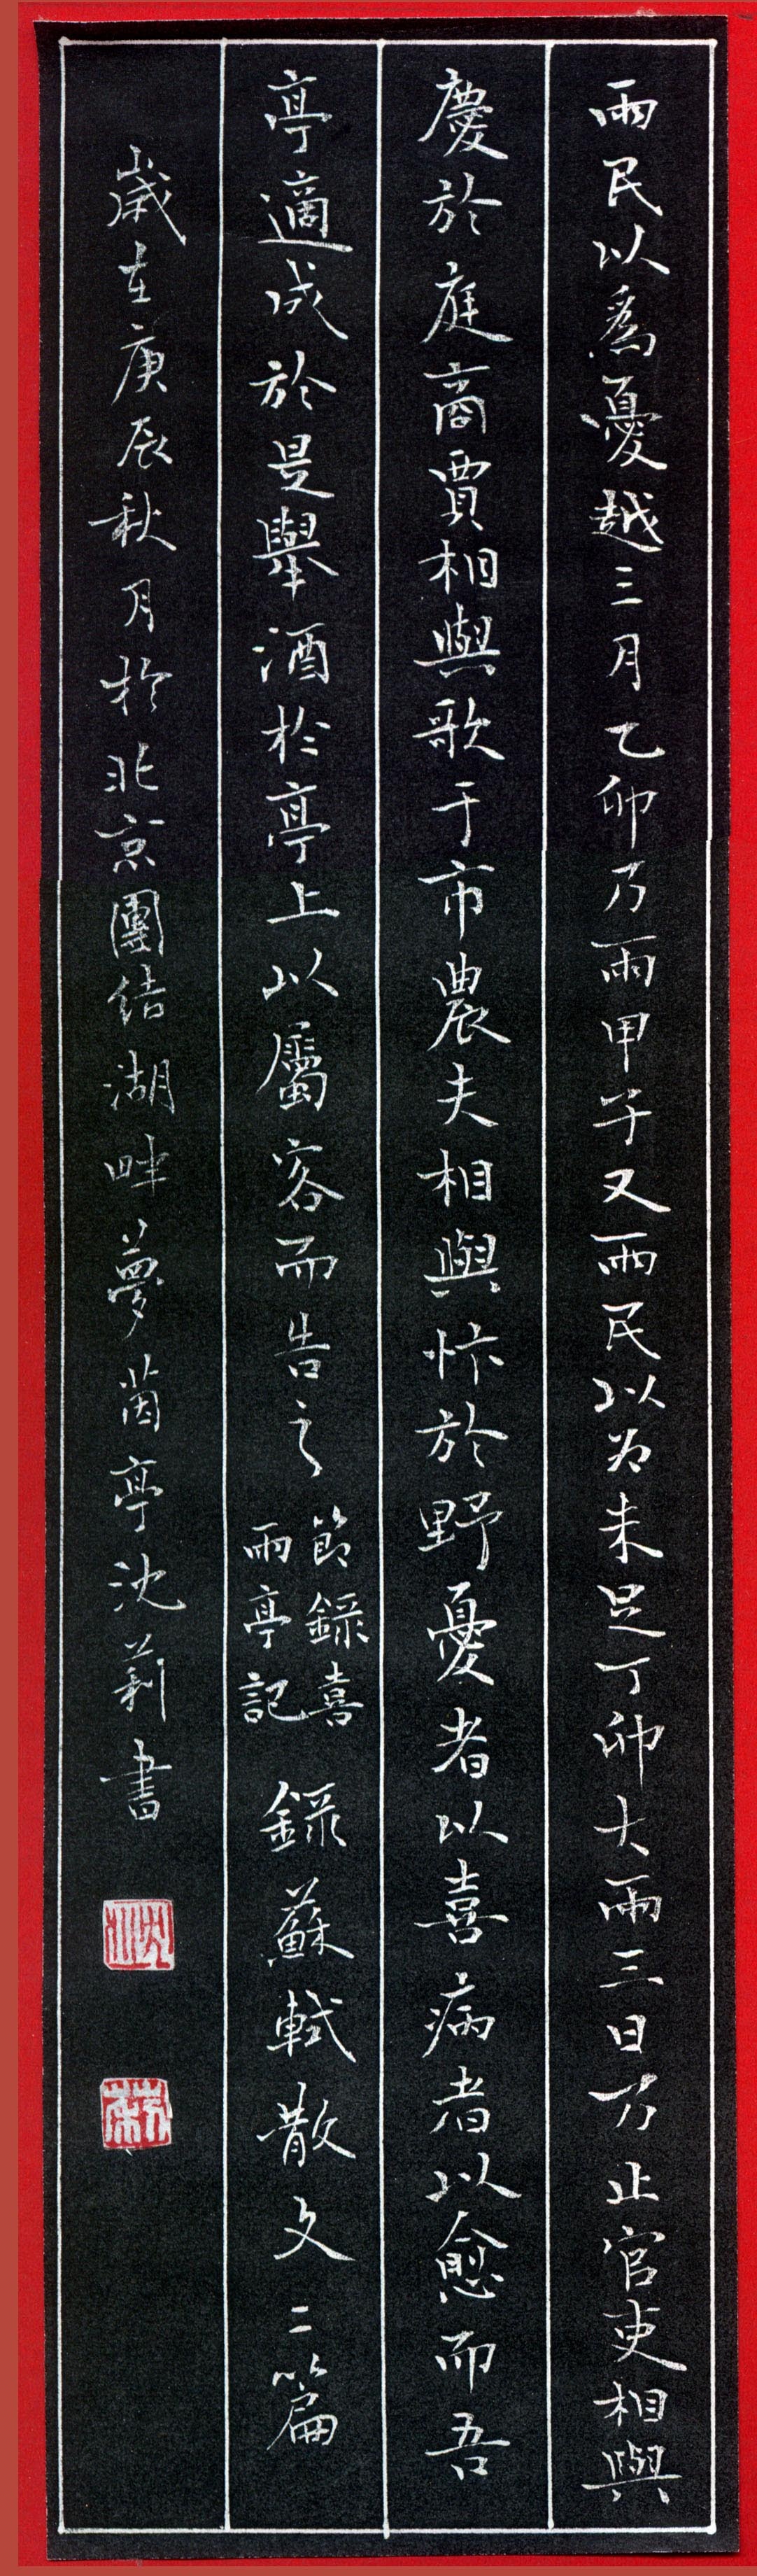 雨民以為憂越三月乙卯乃雨甲子又雨民以为未足丁卯大雨三日乃止官吏相與
慶於庭商賈相與歌于市農夫相與忭於野憂者以喜病者以愈而吾
亭適成於是舉酒於亭上以屬客而告之
節錄喜
雨亭記
錄蘇軾散文二篇
歲在庚辰秋月於北京團结湖畔夢茵亭沈莉書
沈
莉